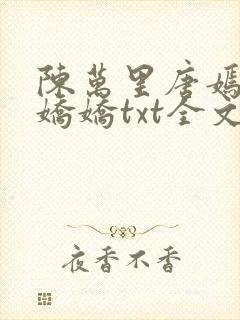 陳萬里唐嫣
嬌嬌txt全文
夜香不香